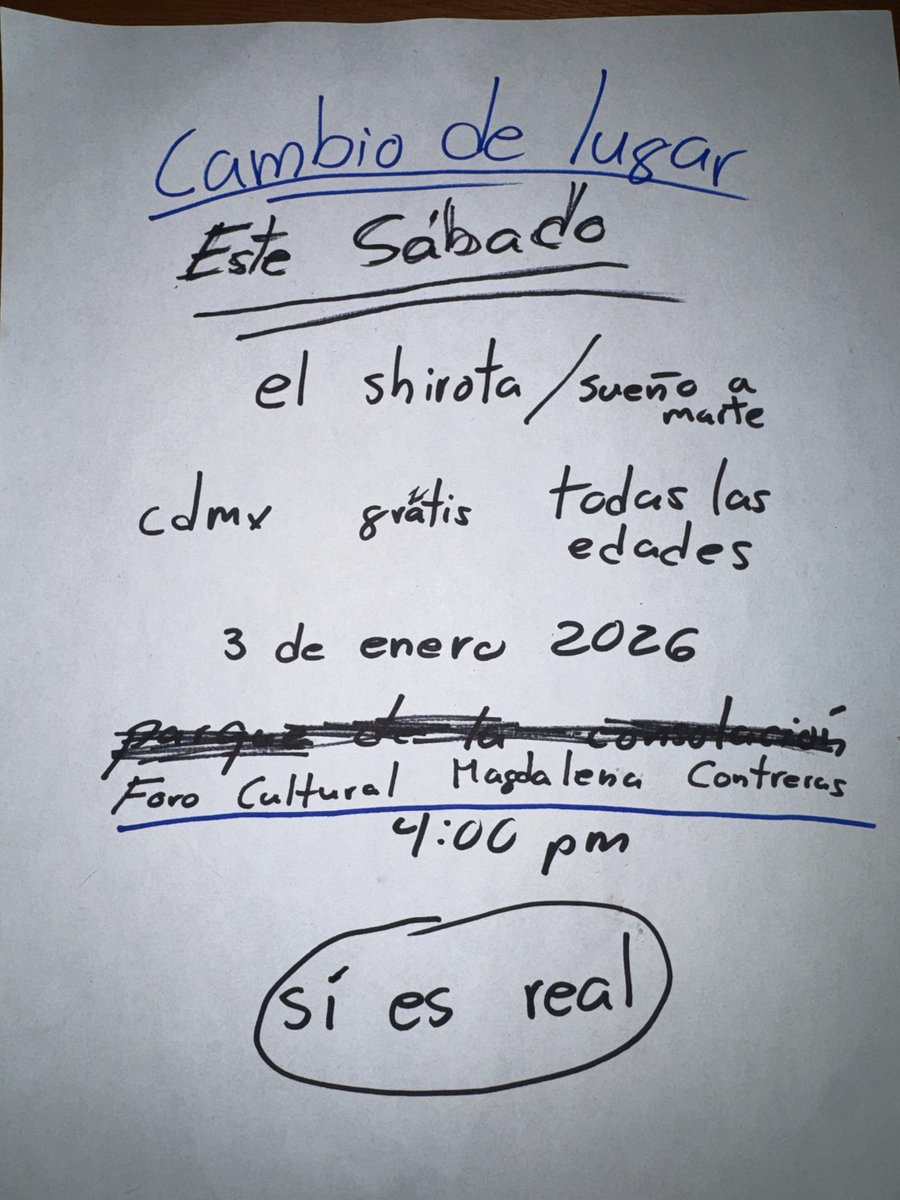 Cambio de lugar
Este Sábado
el shirota / sueño a marte
cdmx grátis todas las edades
3 de enero 2026
parque de la consolación
Foro Cultural Magdalena Contreras
4:00 pm
sí es real